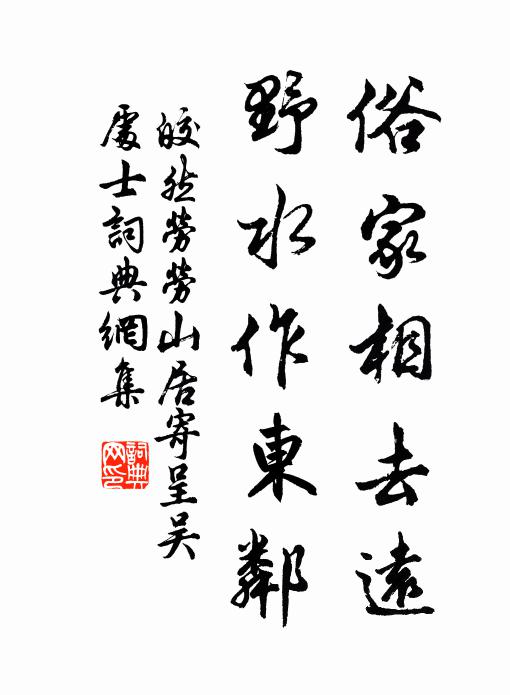 俗家相去遠
野水作東鄰
皎然勞勞山居寄呈吳
處士詞典網集
詞典網印